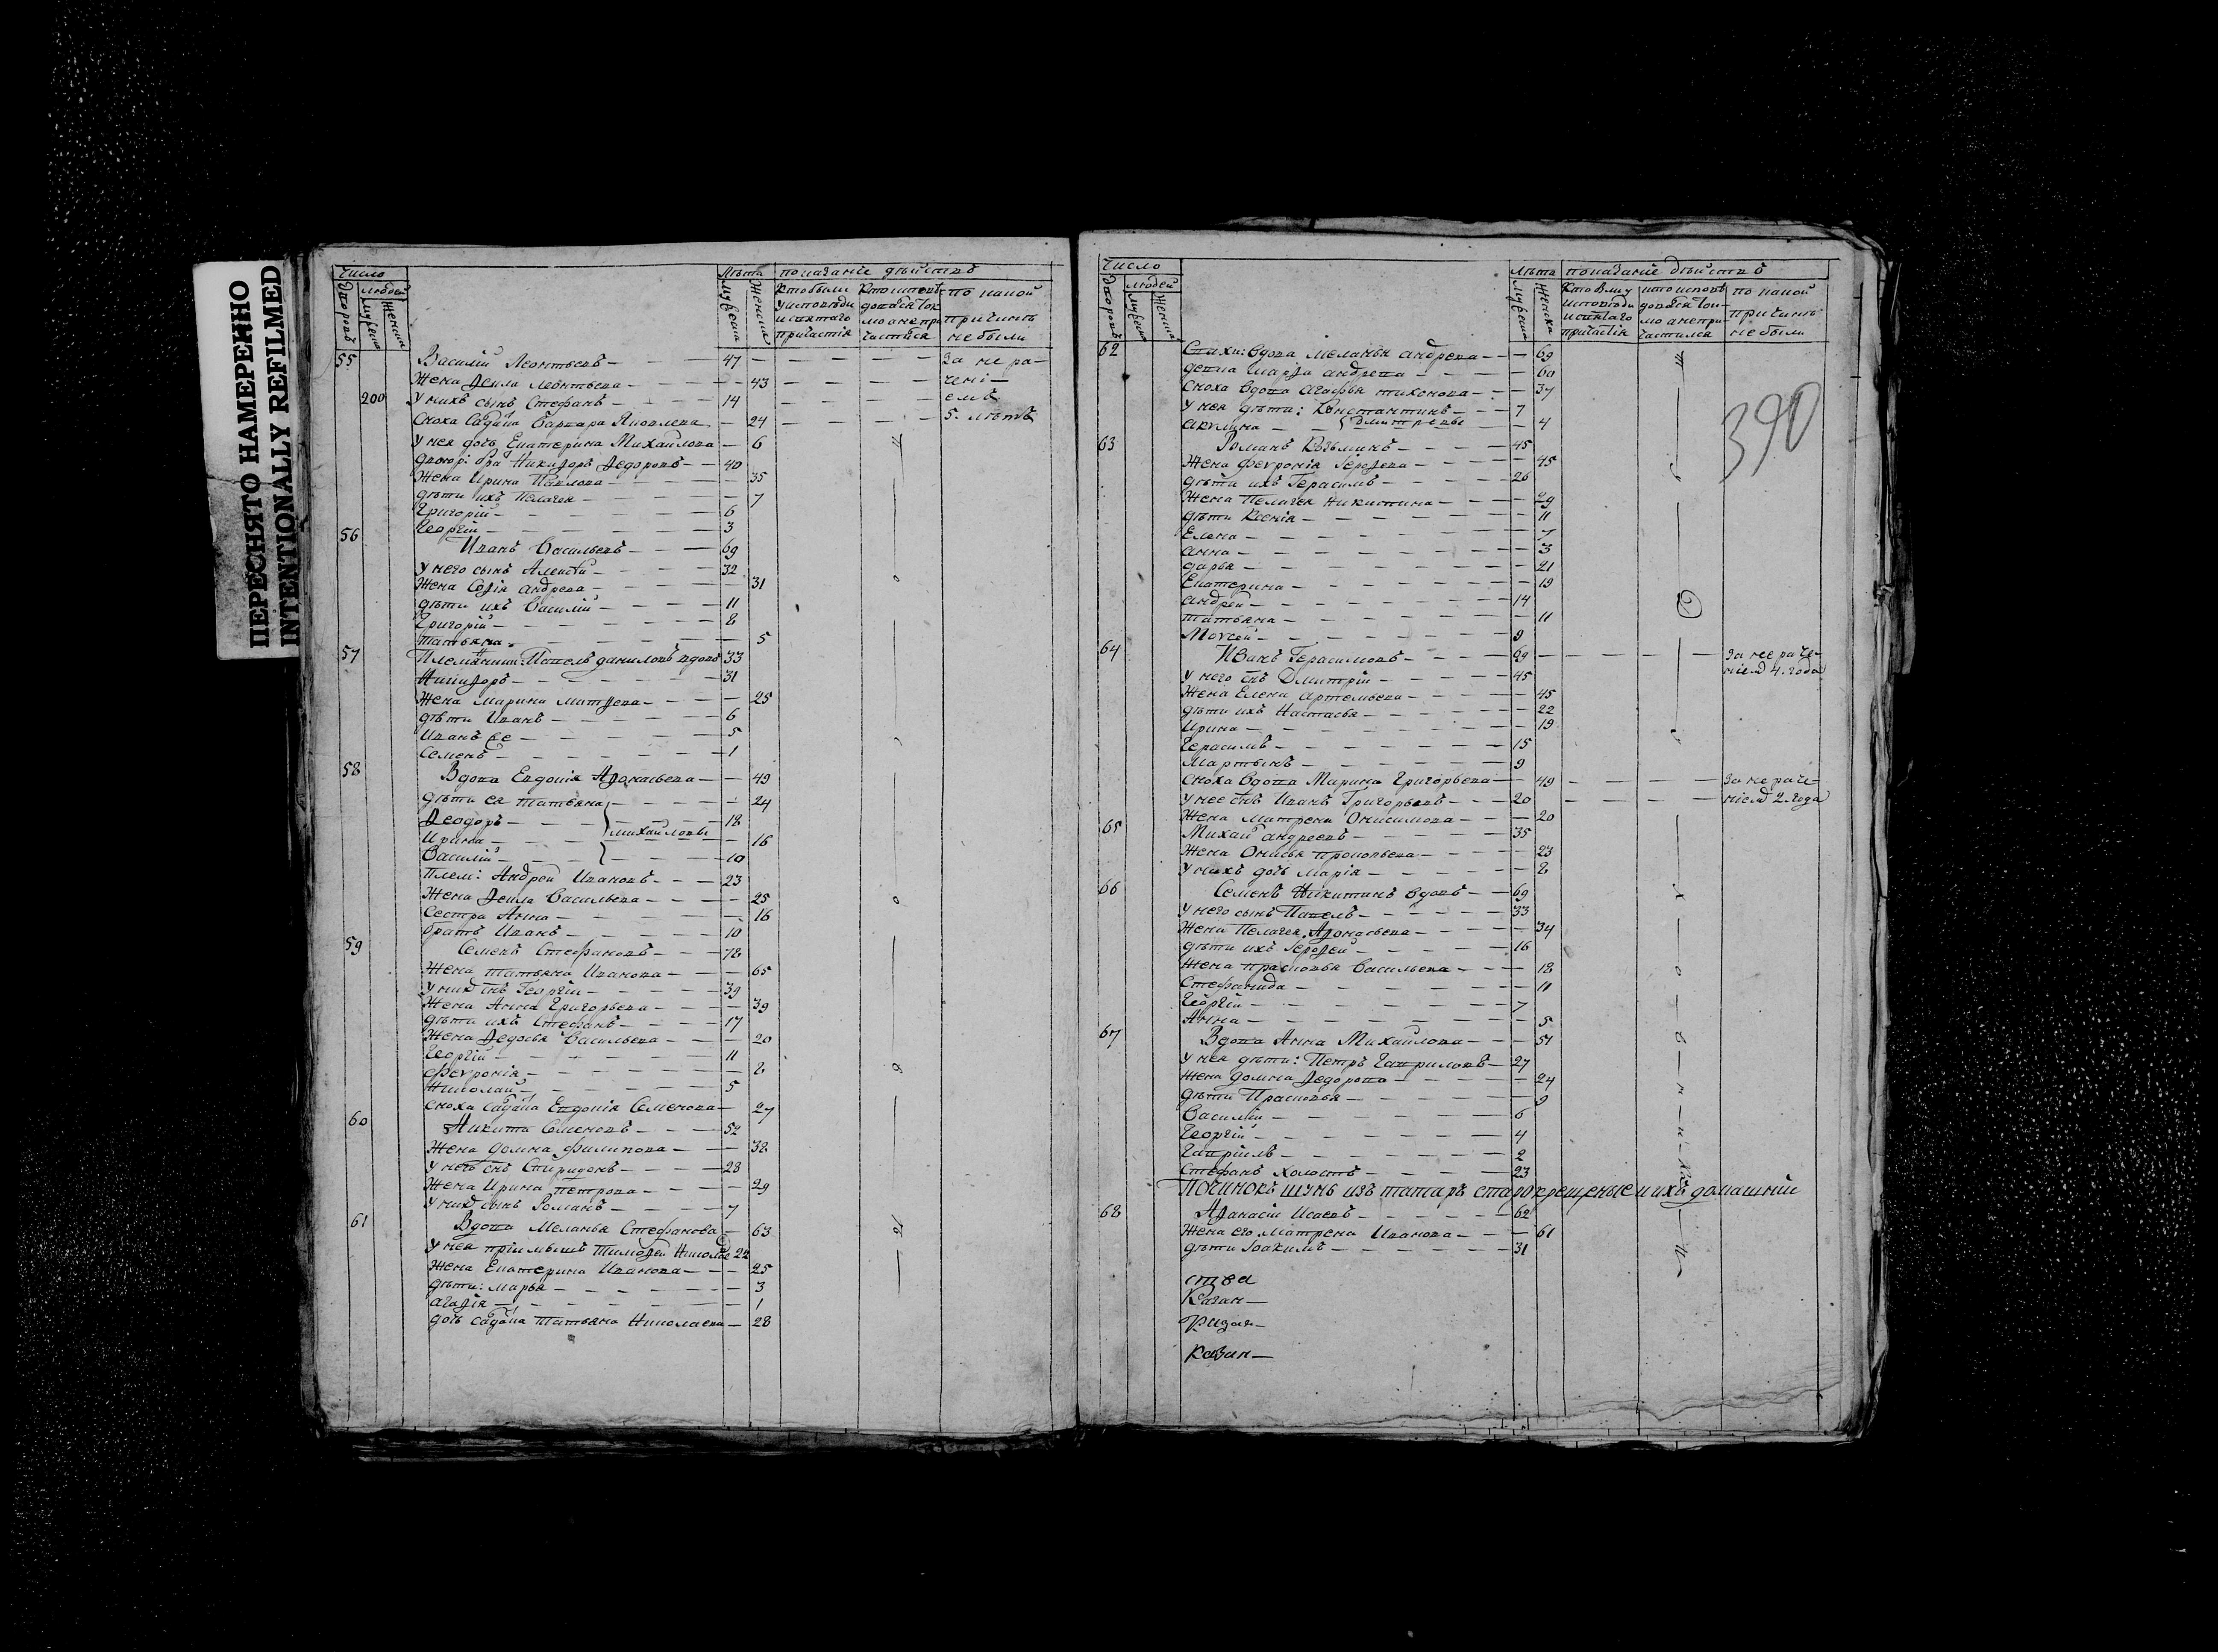 ПЕРЕСНЯТО НАМЕРЕННО
INTENTIONALLY REFILMED
Число
людей
Дворовъ
Мужеска
Женска
Лѣта
показаніе дѣйствъ
Мужеска
Женска
Кто были
у исповѣди
и святаго
причастія
по какой
причинѣ
не были
55 Василій Леонтьевъ 47 за не ра-
Жена Ѳекла Леонтьева 43 чені-
200 У нихъ сынъ Стефанъ 14 емъ
Сноха Варвара Яковлева 24 5. лѣтъ
У нея дочь Екатерина Михайлова 6
Никифоръ Ѳедоровъ 40
Жена Ирина Павлова 35
дѣти ихъ Пелагея 7
Григорій 6
Георгій 3
56 Иванъ Васильевъ 69
У него сынъ Алексѣй 32
Жена Софія Андреева 31
дѣти ихъ Василій 11
Григорій 8
Татьяна 5
57 Племянникъ Павелъ Даниловъ вдовъ 33
Никифоръ 31
Жена Марина 25
дѣти Иванъ 6
Иванъ же 5
Семенъ 1
58 Вдова Евдокія Афонасьева 49
дѣти ея Татьяна 24
Ѳеодоръ 18
михайловы
Ирина 16
Василій 10
Плем: Андрей Ивановъ 23
Жена Ѳекла Васильева 25
Сестра Анна 16
братъ Иванъ 10
59 Семенъ Стефановъ 78
Жена Татьяна Иванова 65
У нихъ снъ Георгій 39
Жена Анна Григорьева 39
дѣти ихъ Стефанъ 17
Жена Ѳедосья Васильева 20
Георгій 11
Феѵронія 8
Николай 5
Сноха Евдокія Семенова 27
60 Никита Семеновъ 52
Жена Домна Филипова 38
У него снъ Спиридонъ 28
Жена Ирина Петрова 29
У нихъ сынъ Романъ 7
61 Вдова Меланья Стефанова 63
У нея пріимышъ Тимофей 22
Жена Екатерина Иванова 25
дѣти: Марья 3
Агафія 1
дочь Татьяна Николаева 28
Число
людей
Дворовъ
Мужеска
Женска
Лѣта
показаніе дѣйствъ
Мужеска
Женска
исповѣди
и святаго
причастія
по какой
причинѣ
не были
390
62 вдова Меланья Андреева 69
девка Марфа Андреева 60
Сноха вдова Агафья Тихонова 37
У нея дѣти: Константинъ 7
Акулина Дмитревы 4
63 Романъ Козьминъ 45
Жена Феѵронія 45
дѣти ихъ Герасимъ 20
Жена Пелагея Никитина 29
дѣти Ксенія 11
Елена 7
Анна 3
Дарья 21
Екатерина 19
Андрей 14
Татьяна 11
Моѵсей 9
64 Иванъ Герасимовъ 69 за не раче-
У него снъ Дмитрій 45 ніемъ 4. года
Жена Елена Артемьева 45
дѣти ихъ Настасья 22
Ирина 19
Герасимъ 15
Мартынъ 9
Сноха вдова Марина Григорьева 49 за не раче-
У нее снъ Иванъ Григорьевъ 20 ніемъ 2 года
Жена Матрена Онисимова 20
65 Михайл Андреевъ 35
Жена Онисья Прокопьева 23
У нихъ дочь Марія 8
66 Семенъ Никитинъ вдовъ 69
У него сынъ Павелъ 33
Жена Пелагея Афонасьева 34
дѣти ихъ 16
Жена Прасковья Васильева 18
Стефанида 11
Георгій 7
Анна 5
67 Вдова Анна Михайлова 51
У нея дѣти: Петръ Гавриловъ 27
Жена Домна Ѳедорова 24
дѣти Прасковья 9
Василій 6
Георгій 4
Гавріилъ 2
Стефанъ холостъ 23
Починокъ Шунь изъ татаръ старокрещеные и ихъ домашнiи
68 Афанасій Исаевъ 62
Жена его Матрена Иванова 61
дѣти Іоакимъ 31